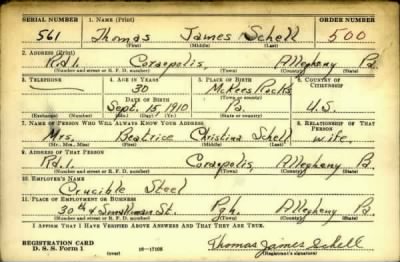 SERIAL NUMBER 1. NAME (Print) ORDER NUMBER
561 Thomas James Schell 500
(First) (Middle) (Last)
2. ADDRESS (Print)
Rd. 1. Coraopolis, Allegheny Pa.
(Number and street or R. F. D. number) (Town) (County) (State)
3. TELEPHONE 4. AGE IN YEARS 5. PLACE OF BIRTH 6. COUNTRY OF CITIZENSHIP
30 McKees Rocks
(Town or county)
DATE OF BIRTH
Sept. 15, 1910 Pa. U.S.
(Exchange) (No.) (Mo.) (Day) (Yr.) (State or country)
7. NAME OF PERSON WHO WILL ALWAYS KNOW YOUR ADDRESS 8. RELATIONSHIP OF THAT PERSON
Mrs. Beatrice Christina Schell wife.
(Mr., Mrs., Miss) (First) (Middle) (Last)
9. ADDRESS OF THAT PERSON
Rd. 1. Coraopolis, Allegheny Pa.
(Number and street or R. F. D. number) (Town) (County) (State)
10. EMPLOYER'S NAME
Crucible Steel
11. PLACE OF EMPLOYMENT OR BUSINESS
30th & Smallman St. Pgh. Allegheny Pa.
(Number and street or R. F. D. number) (Town) (County) (State)
I AFFIRM THAT I HAVE VERIFIED ABOVE ANSWERS AND THAT THEY ARE TRUE.
REGISTRATION CARD Thomas James Schell
D. S. S. Form 1 16—17105 (Registrant's signature)